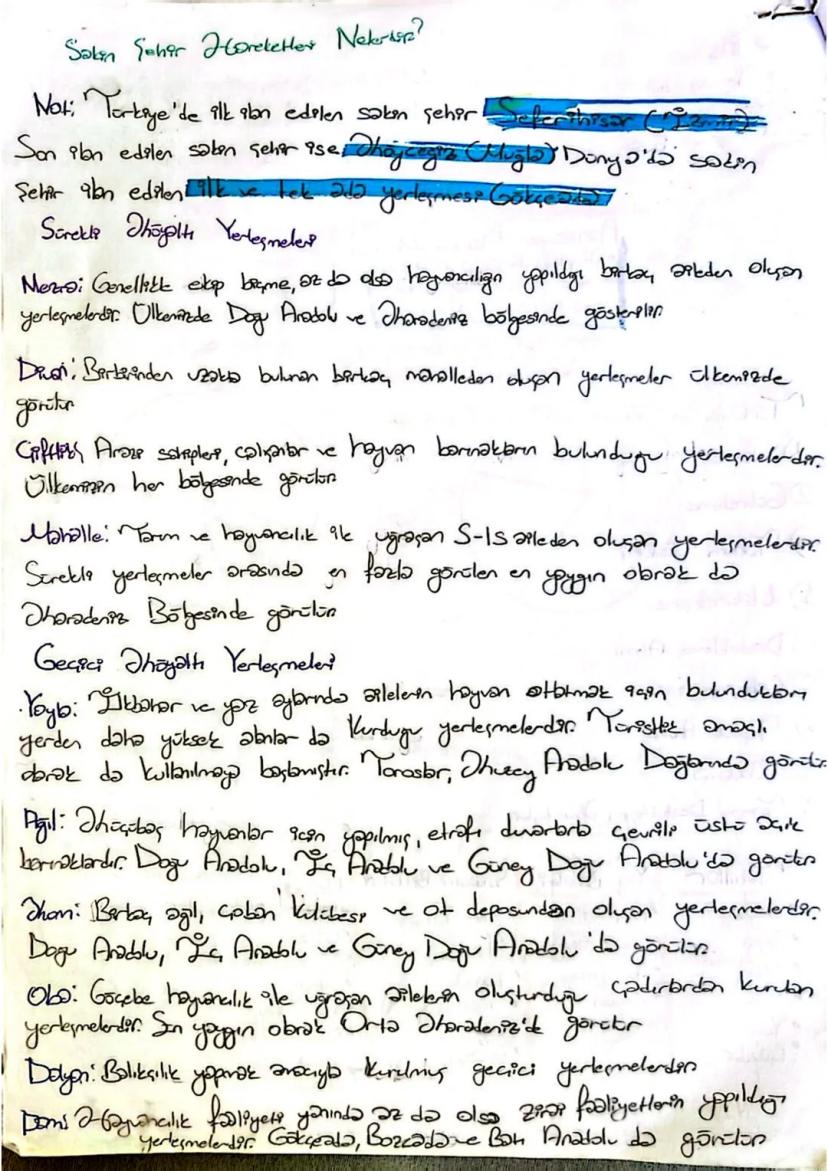 Sakin Şehir Hareketleri Nelerdir?
Not: Türkiye'de ilk ilan edilen sakin şehir Seferihisar (İzmir)
Son ilan edilen sakin şehir ise Köyceğiz (Muğla) Dünya'da sakin
şehir ilan edilen ilk ve tek ada yerleşmesi Gökçeada
Sürekli Köyaltı Yerleşmeleri
Mezra: Genellikle ekip biçme, az da olsa hayvancılığın yapıldığı birkaç aileden oluşan
yerleşmelerdir. Ülkemizde Doğu Anadolu ve Karadeniz bölgesinde gösterilir
Divan: Birbirinden uzakta bulunan birkaç mahalleden oluşan yerleşmeler ülkemizde
görülür
Çiftlik, Arazi sahipleri, çalışanlar ve hayvan barınakların bulunduğu yerleşmelerdir.
Ülkemizin her bölgesinde görülür
Mahalle: Tarım ve hayvancılık ile uğraşan 5-15 aileden oluşan yerleşmelerdir.
Sürekli yerleşmeler arasında en fazla görülen en yaygın olarak da
Karadeniz Bölgesinde görülür
Geçici Köyaltı Yerleşmeleri
Yayla: İlkbahar ve yaz aylarında ailelerin hayvan otlatmak için bulundukları
yerden daha yüksek alanlar da kurduğu yerleşmelerdir. Turistlik amaçlı
olarak da kullanılmaya başlamıştır. Toroslar, Kuzey Anadolu Dağlarında görülür.
Ağıl: Küçükbaş hayvanlar için yapılmış, etrafı duvarlarla çevrili üstü açık
barınaklardır. Doğu Anadolu, İç Anadolu ve Güney Doğu Anadolu'da görülür
Kom: Birkaç ağıl, çoban kulübesi ve ot deposundan oluşan yerleşmelerdir.
Doğu Anadolu, İç Anadolu ve Güney Doğu Anadolu'da görülür.
Oba: Göçebe hayvancılık ile uğraşan ailelerin oluşturduğu çadırlardan kurulan
yerleşmelerdir. Son yaygın olarak Orta Karadeniz'de görülür
Dalyan: Balıkçılık yapmak amacıyla kurulmuş geçici yerleşmelerdir
Dam: Hayvancılık faaliyeti yanında az da olsa zirai faaliyetlerin yapıldığı
yerleşmelerdir. Gökçeada, Bozcada ve Batı Anadolu da görülür